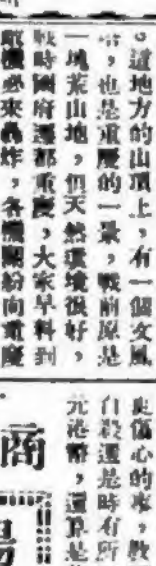 。這地方的山頂上，有一個文風
，也是重慶的一景，戰前原是
一塊荒山地，但天然環境很好，
戰時國府遷都重慶，大家早料到
敵機必來轟炸，各機關紛向重慶
更傷心的來，教
自殺還是時有所
元港幣，還算是
商